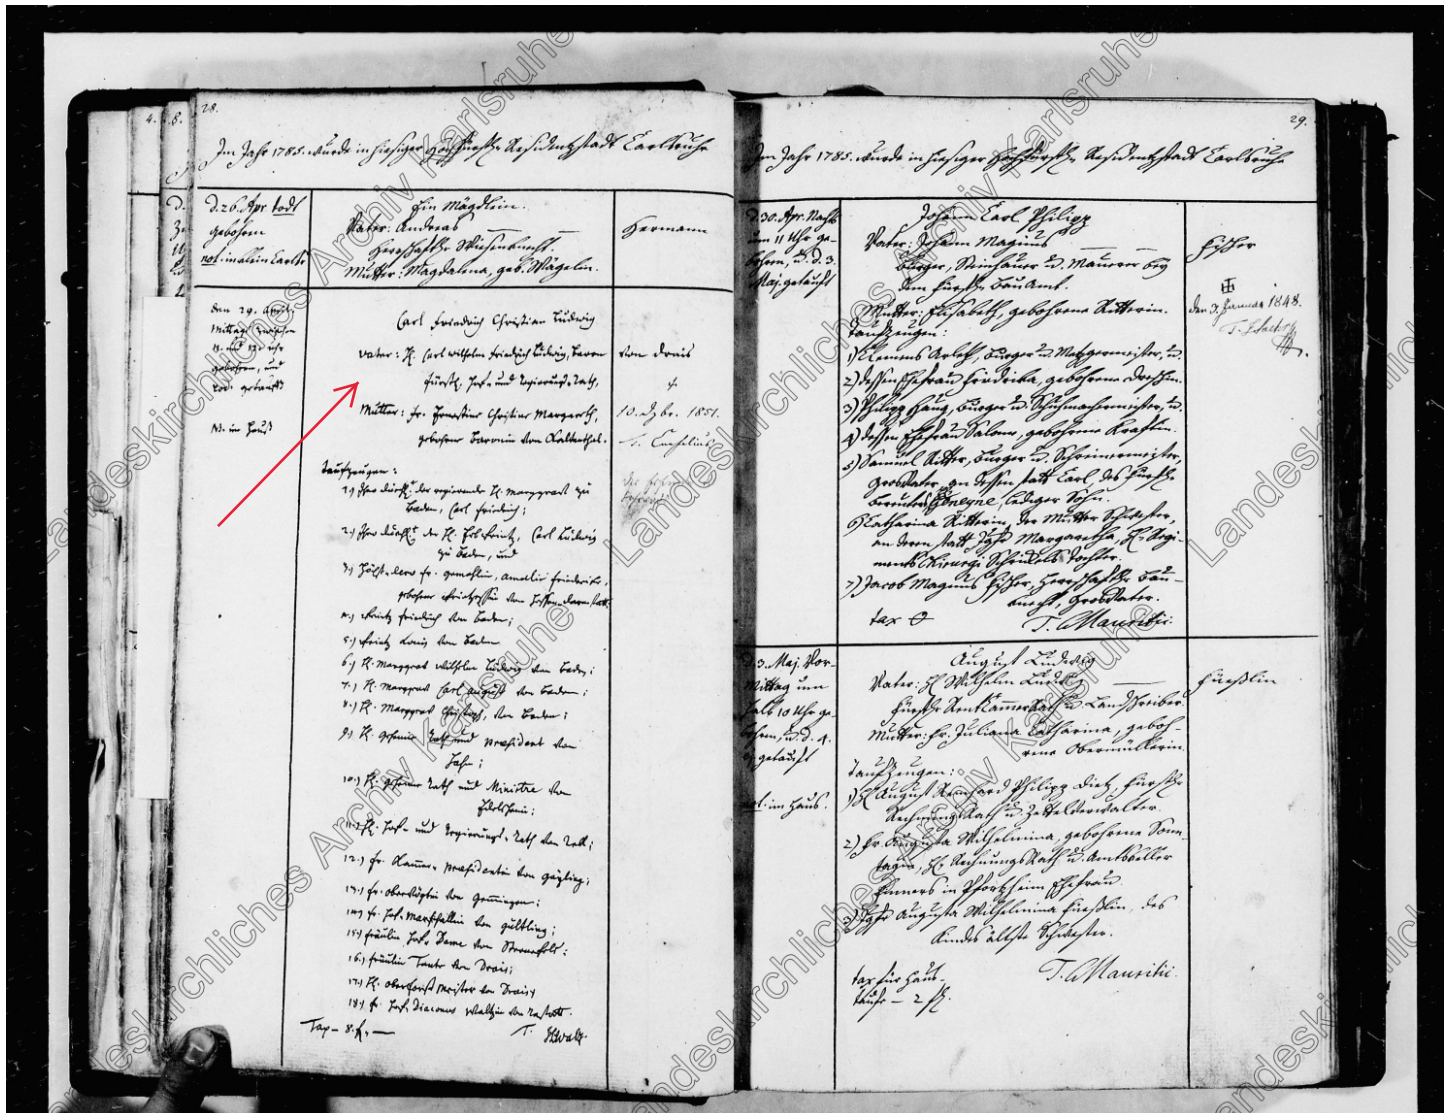 28.
Im Jahr 1785. wurde in hiesiger Hochfürstl. Residentzstadt Carlsruhe
d. 26. Apr. todt
gebohren
not. in klein Carlsr.
Ein Mägdlein.
Vater: Andreas
Herrschaftl.
Mutter: Magdalena, geb. Nägelin.
Hermann
den 29. April,
Mittags zwischen
11. und 12. uhr
gebohren, und
eod. getauft
N. im Hauß
Carl Friedrich Christian Ludwig
Vater: H. Carl Wilhelm Friedrich Ludwig, Baron
fürstl. Hof- und Regierungs-Rath,
Mutter: Fr. Ernestine Christine Margareth,
gebohrne Baronin von Kaltenthal.
von Drais
+
10. Dzbr. 1851.
Taufzeugen:
1.) Ihro durchl. der regierende H. Marggrav zu
Baden, Carl Friedrich;
2.) Ihro durchl. der H. Erb Printz, Carl Ludwig
zu Baden, und
3.) Höchst-dero Fr. Gemahlin, Amalie Friederike,
gebohrne Printzessin von Hessen-darmstatt.
4.) Printz Friedrich von Baden;
5.) Printz Louis von Baden
6.) H. Marggrav Wilhelm Ludwig von Baden;
7.) H. Marggrav Carl August von Baden;
8.) H. Marggrav Christoph, von Baden;
9.) H. Geheime Rath und Praesident von
Hahn;
10.) H. Geheime Rath und Ministre von
Edelsheim;
11.) H. Hof- und Regierungs-Rath von
12.) Fr. Kammer-Praesidentin von Gayling;
13.) Fr. Obervögtin von Gemmingen;
14.) Fr. Hof-Marschallin von Gültling;
15.) Fräulin Hof-Dame von Sternenfels:
16.) Fräulin Tante von Drais;
17.) H. Oberforst Meister von Drais;
18.) Fr. Hof-Diaconus Waltzin von Rastatt.
Tax - 8. f. —
T. Walz.
29.
Im Jahr 1785. wurde in hiesiger Hochfürstl. Residentzstadt Carlsruhe
d. 30. Apr. Nachts
um 11 Uhr ge-
bohren, u. d. 3.
Maj. getauft
Johann Carl Philipp
Vater: Johann Magnus
Burger, Steinhauer u. Maurer bey
dem Fürstl. Bau Amt.
Mutter: Elisabeth, gebohrene Ritterin.
Taufzeugen:
1) Clemens Arleth, Burger u. Metzgermeister, u.
2) dessen Ehefrau Friderika, gebohrene
3) Philipp Haug, Burger u. Schuhmachermeister, u.
4) dessen Ehefrau Salome, gebohrene
5) Samuel Ritter, Burger u. Schreinermeister,
Grosvater, an dessen statt Carl, des Fürstl.
lediger Sohn.
6) Catharina Ritterin, der Mutter Schwester,
an deren statt Jgfr. Margaretha, H. Regi-
ments Chirurgi Schrickels Tochter.
7) Jacob Magnus Fischer, Herrschaftl. Bau-
knecht, Grosvater.
tax 0
T. Mauritii.
Fischer
den 3. Januar 1848.
d. 3. Maj. Vor-
mittag um
halb 10 Uhr ge-
bohren, u. d. 4.
ej. getauft
not. im Haus.
August Ludwig
Vater: H. Wilhelm Ludwig
Fürstl. RentKammerRath u. Landschreiber
Mutter: Fr. Juliana Catharina, geboh-
rene Obermüllerin.
Taufzeugen:
1) H. August Bernhard Philipp Dietz, Fürstl.
Rechnungs Rath u. Zettelverwalter
2) Fr. Augusta Wilhelmina, gebohrene Sonn-
tagin, H. Rechnungs Rath u. Amtskeller
in Pforzheim Ehefrau.
3) Jgfr. Augusta Wilhelmina Füeßlin, des
Kindes älteste Schwester.
tax für Haus-
taufe — 2 f.
T. Mauritii.
Füeßlin
Landeskirchliches Archiv Karlsruhe